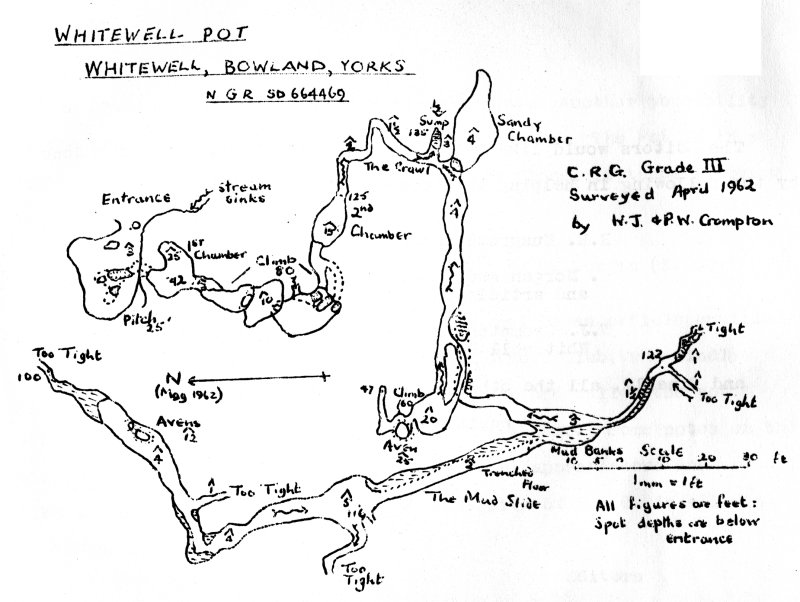 WHITEWELL POT
WHITEWELL, BOWLAND, YORKS
N G R SD 664469
C.R.G. Grade III
Surveyed April 1962
by W.J. & P.W. Crompton
Entrance
Stream
Sinks
Pitch
25'
1st
Chamber
25
42
Climb
80
10
125
2nd
Chamber
15
The Crawl
1½
Sump
135
3
Sandy
Chamber
4
4
47
Climb
60
Aven
25
20
N
(Mag 1962)
Too Tight
100
Avens
12
4
1
Too Tight
4
5
114
Too
Tight
The Mud Slide
Trenched
Floor
Mud Banks
122
Tight
1
Too Tight
Scale
10 5 0 10 20 30 ft
1mm = 1ft
All figures are feet:
Spot depths are below
entrance